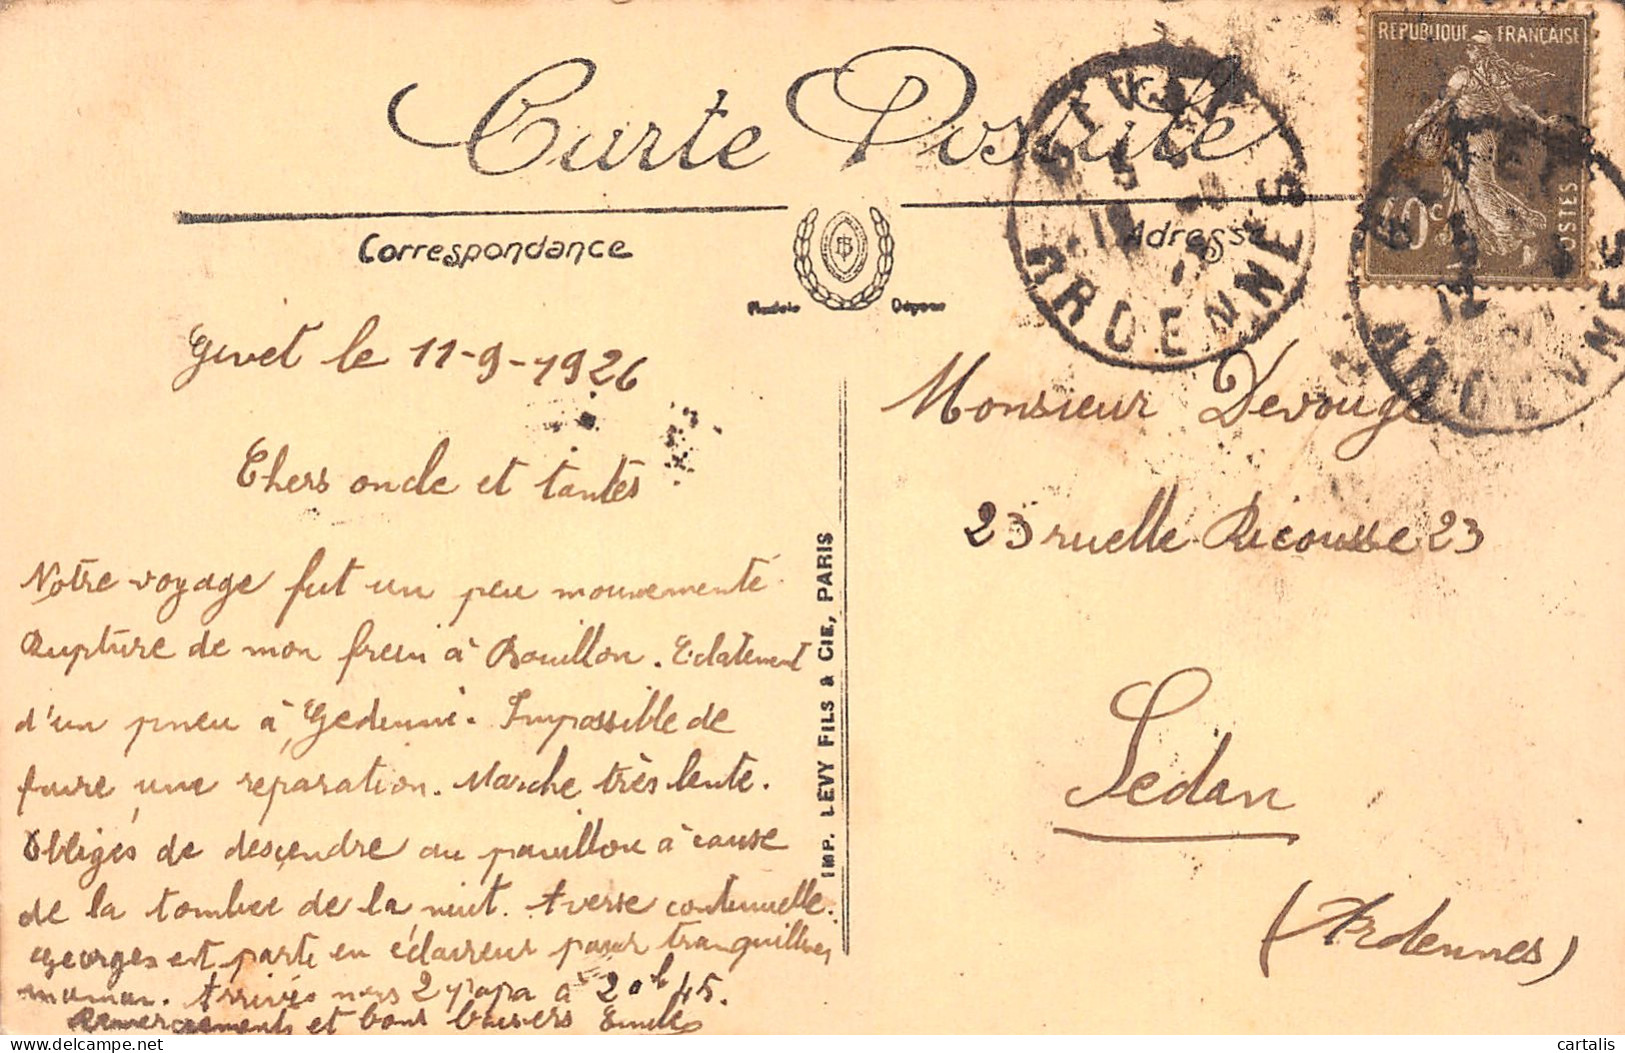 Carte Postale
RÉPUBLIQUE FRANÇAISE
POSTES
GIVET
ARDENNES
GIVET
ARDENNES
Correspondance
Adresse
Givet le 11-9-1926
Chers oncle et tantes
Notre voyage fut un peu mouvementé
Rupture de mon frein à Bouillon. Eclatement
d'un pneu à Gedinne. Impossible de
faire une réparation. Marche très lente.
Obligés de descendre au pavillon à cause
de la tombée de la nuit. Averse continuelle.
Georges est parti en éclaireur pour tranquilliser
maman. Arrivés nous 2 papa à 20h45.
Remerciements et bons baisers Emile
IMP. LEVY FILS & CIE, PARIS
Monsieur Devouge
23 ruelle Ricousse 23
Sedan
(Ardennes)
delcampe.net
cartalis